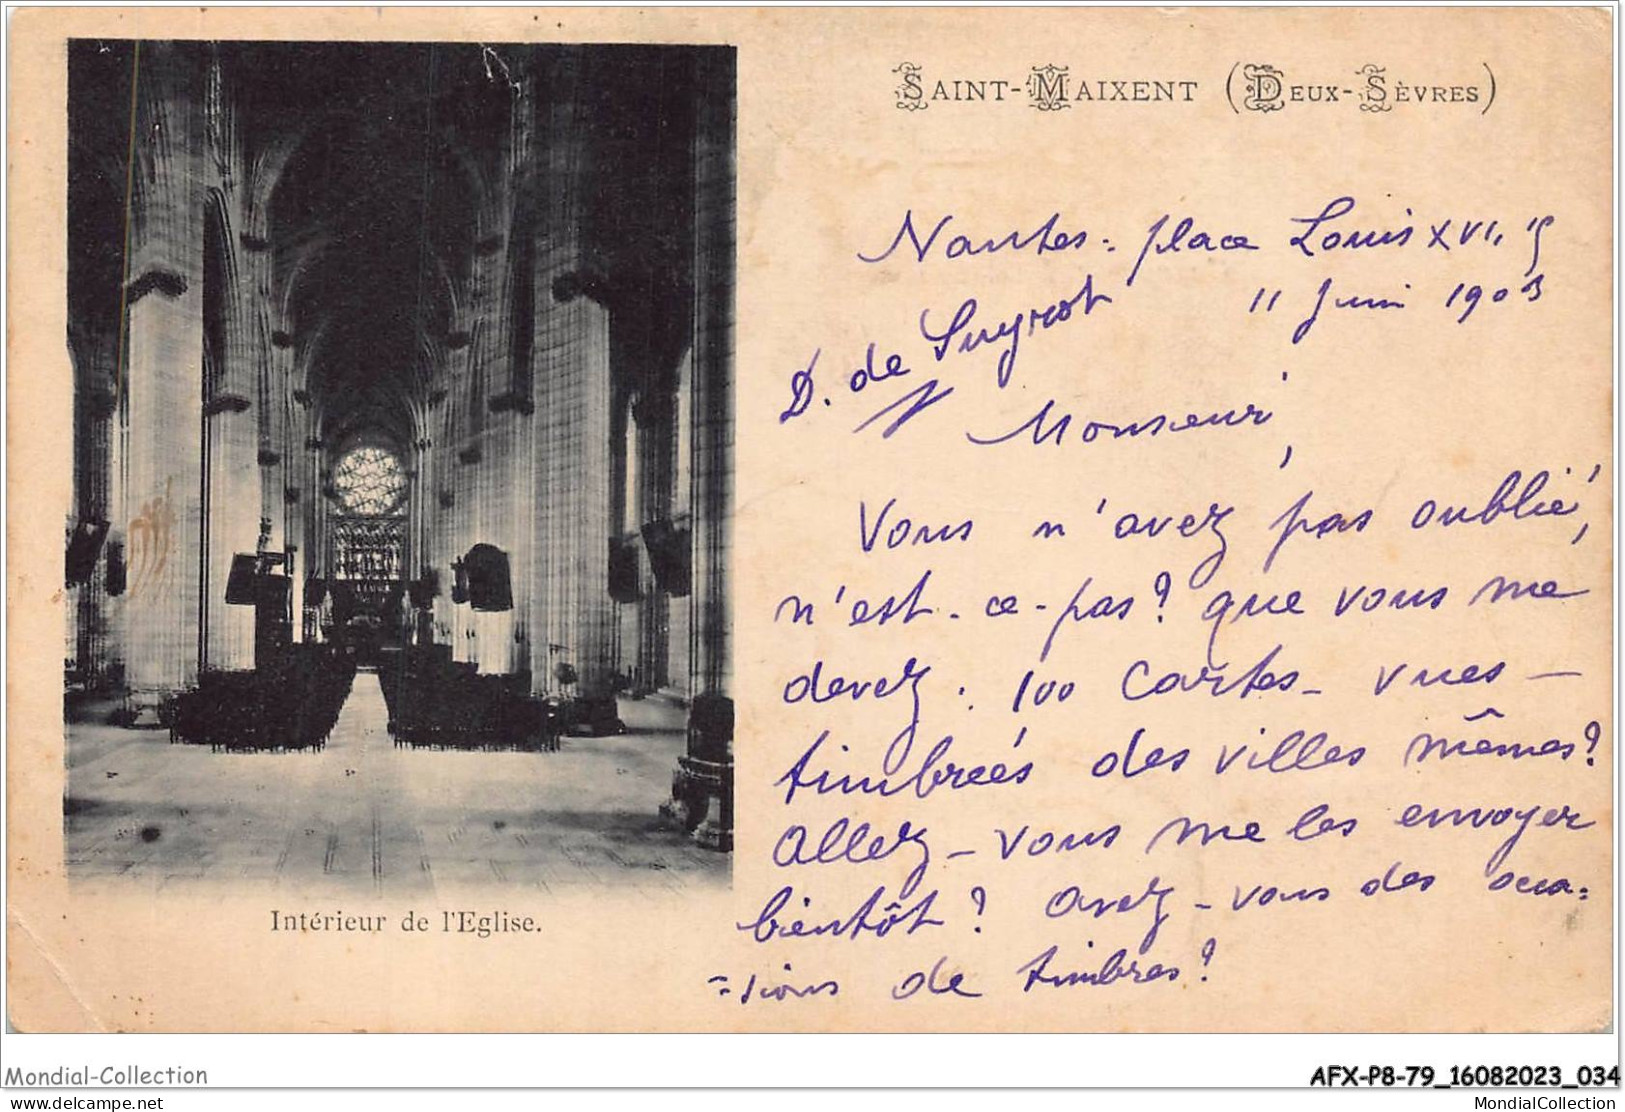 SAINT-MAIXENT (DEUX-SÈVRES)
Nantes = place Louis XVI,
11 Juin 1903
D. de Suyrot
Monsieur,
Vous n'avez pas oublié,
n'est-ce-pas? que vous me
devez. 100 cartes-vues-
timbrées des villes mêmes?
Allez-vous me les envoyer
bientôt? avez-vous des occa=
=sions de timbres?
Intérieur de l'Eglise.
Mondial-Collection
AFX-P8-79_16082023_034
www.delcampe.net
MondialCollection